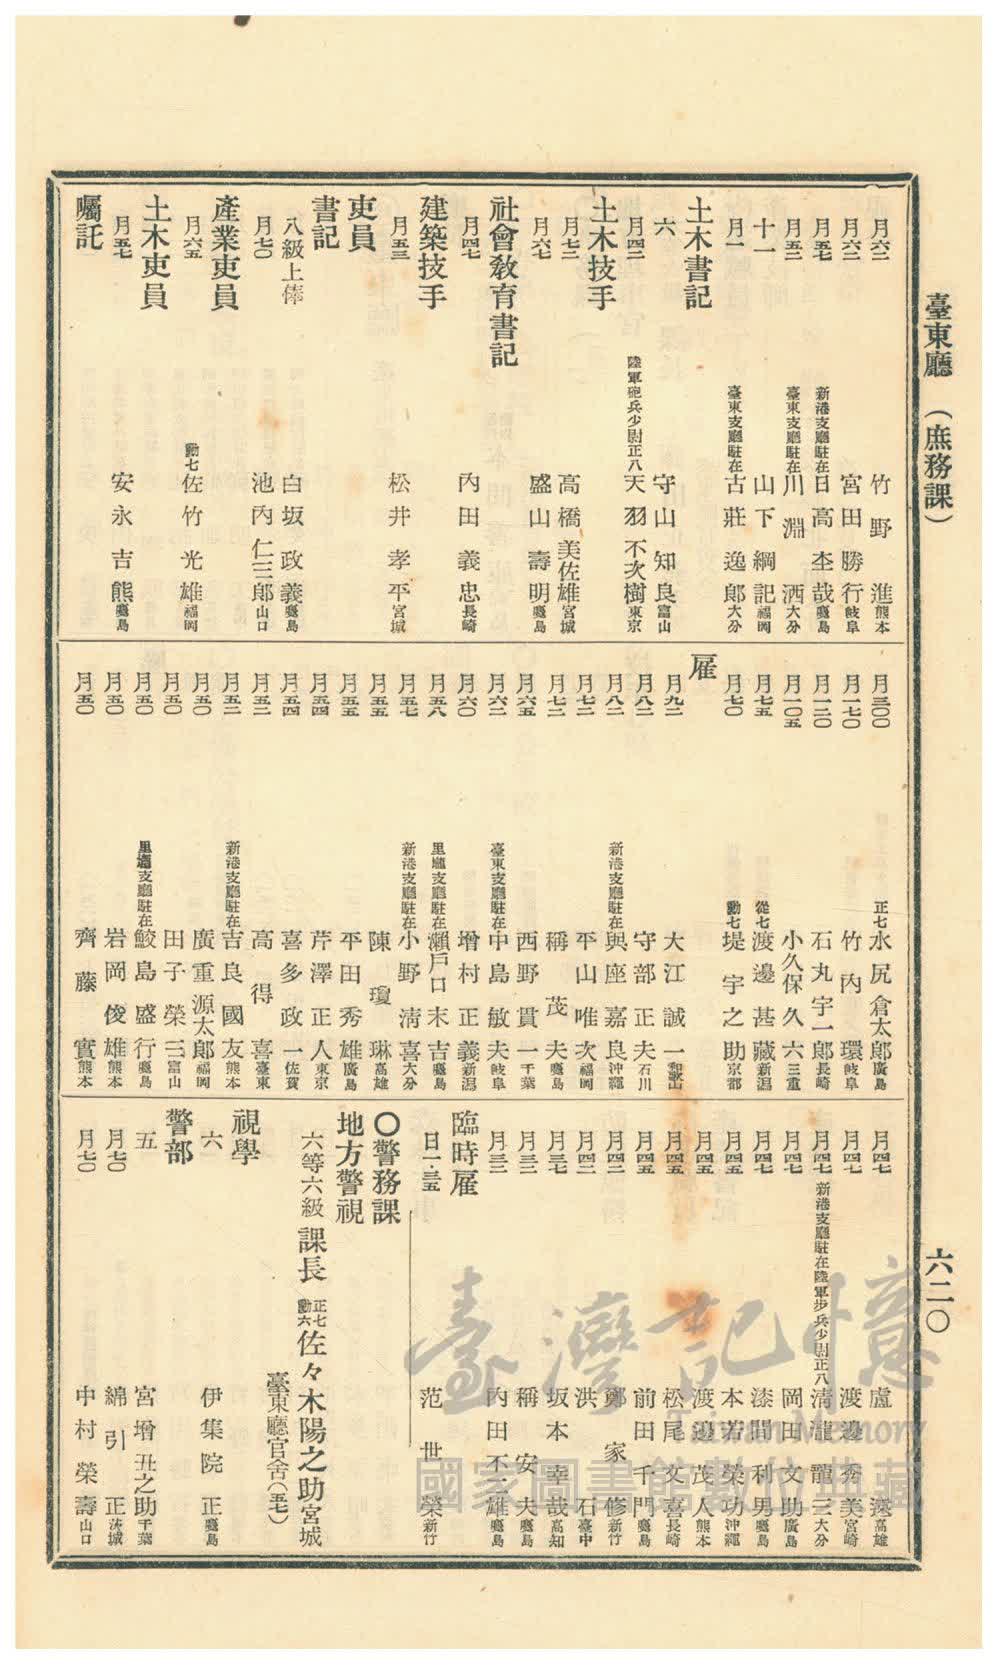 臺東廳　（庶務課）
六二〇
月六二　竹野進熊本
月六二　宮田勝行岐阜
月五七　新港支廳駐在日高本哉鹿島
月五三　臺東支廳駐在川淵洒大分
十一　山下綱記福岡
月一　臺東支廳駐在古莊逸郎大分
土木書記
六　守山知良富山
月四三　陸軍砲兵少尉正八天羽不次樹東京
土木技手
月七二　高橋美佐雄宮城
月六七　盛山壽明鹿島
社會敎育書記
月四七　內田義忠長崎
建築技手
月五三　松井孝平宮城
吏員
書記
八級上俸　白坂政義鹿島
月七〇　池內仁三郞山口
產業吏員
月六五　勳七佐竹光雄福岡
土木吏員
月五七　安永吉熊鹿島
囑託
月三〇〇　正七水尻倉太郞廣島
月一七〇　竹內環岐阜
月一二〇　石丸宇一郞長崎
月一〇五　小久保久六三重
月七五　從七渡邊甚藏新潟
月七〇　勳七堤宇之助京都
雇
月九二　大江誠一和歌山
月八二　守部正夫石川
月八二　新港支廳駐在與座嘉良沖繩
月七二　平山唯次福岡
月七二　稱茂夫鹿島
月六五　西野貫一千葉
月六二　臺東支廳駐在中島敏夫岐阜
月六〇　增村正義新潟
月五八　里壠支廳駐在瀨戶口末吉鹿島
月五七　新港支廳駐在小野淸喜大分
月五五　陳瓊琳高雄
月五五　平田秀雄廣島
月五四　芹澤正人東京
月五四　喜多政一佐賀
月五二　高得喜臺東
月五二　新港支廳駐在吉良國友熊本
月五〇　廣重源太郞福岡
月五〇　田子榮三富山
月五〇　里壠支廳駐在鮫島盛行鹿島
月五〇　岩岡俊雄熊本
月五〇　齊藤實熊本
月四七　盧遠高雄
月四七　渡邊秀美宮崎
月四七　新港支廳駐在陸軍步兵少尉正八淸瀧龍三大分
月四七　岡田文助廣島
月四七　漆間利男鹿島
月四五　本若榮功沖繩
月四五　渡邊茂人熊本
月四五　松尾文喜長崎
月四五　前田千門鹿島
月四二　鄭家修新竹
月四二　洪石臺中
月三七　坂本幸哉高知
月三二　稱安夫鹿島
月三二　內田不二雄鹿島
臨時雇
日一・三五　范世榮新竹
〇警務課
地方警視
六等六級　課長　正七勳六佐々木陽之助宮城
臺東廳官舍（五七）
視學
六　伊集院正鹿島
警部
五　宮增丑之助千葉
月七〇　綿引正茨城
月七〇　中村榮壽山口
臺灣記憶
Taiwan Memory
國家圖書館數位典藏